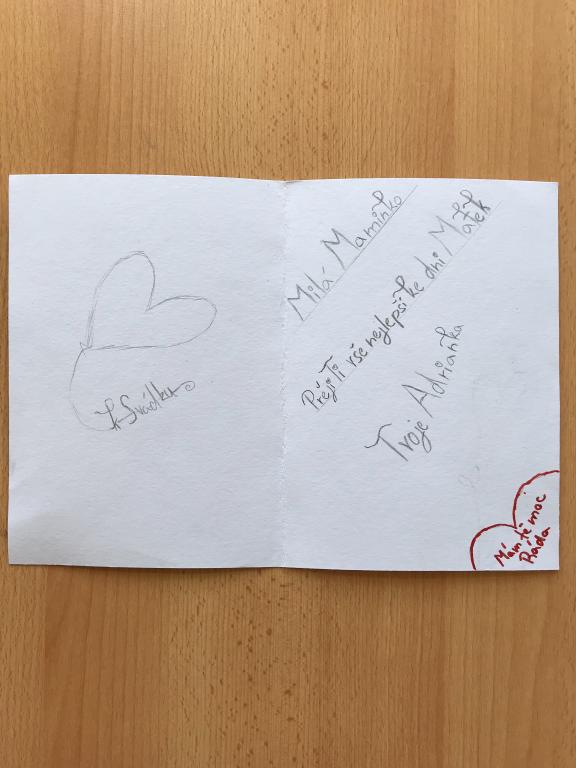 K Svádku
Milá Maminko
Přeji Ti vše nejlepší ke dni Matek
Tvoje Adrianka
Mám tě moc
Ráda